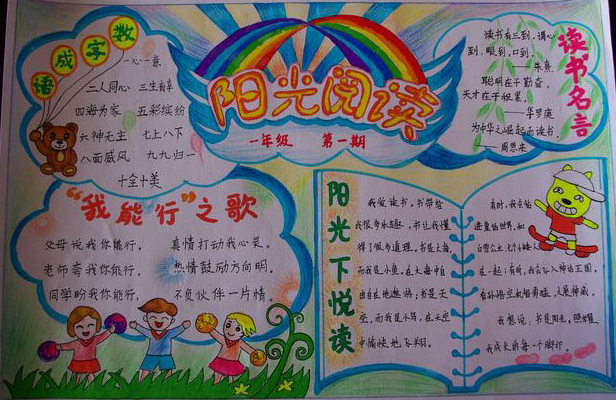 数字成语
一心一意
二人同心 三生有幸
四海为家 五彩缤纷
六神无主 七上八下
八面威风 九九归一
十全十美
阳光阅读
一年级 第一期
读书名言
读书有三到，谓心
到，眼到，口到。
——朱熹
聪明在于勤奋，
天才在于积累。
——华罗庚
为中华之崛起而读书。
——周恩来
“我能行”之歌
父母说我你能行， 真情打动我心灵。
老师夸我你能行， 热情鼓励方向明。
同学盼我你能行， 不负伙伴一片情。
阳光下悦读
我爱读书，书带给
我很多乐趣，书让我懂
得了很多道理。书是大海，
而我是小鱼，在大海中自
由自在地遨游；书是天
空，而我是小鸟，在天空
中愉快地飞翔。
有时，我会钻
进童话世界，和
白雪公主、七个小矮人
在一起；有时，我会加入神话王国，
看孙悟空机智勇敢，大展神威。
我想说：书是阳光，照耀着
我成长的每一个脚印。